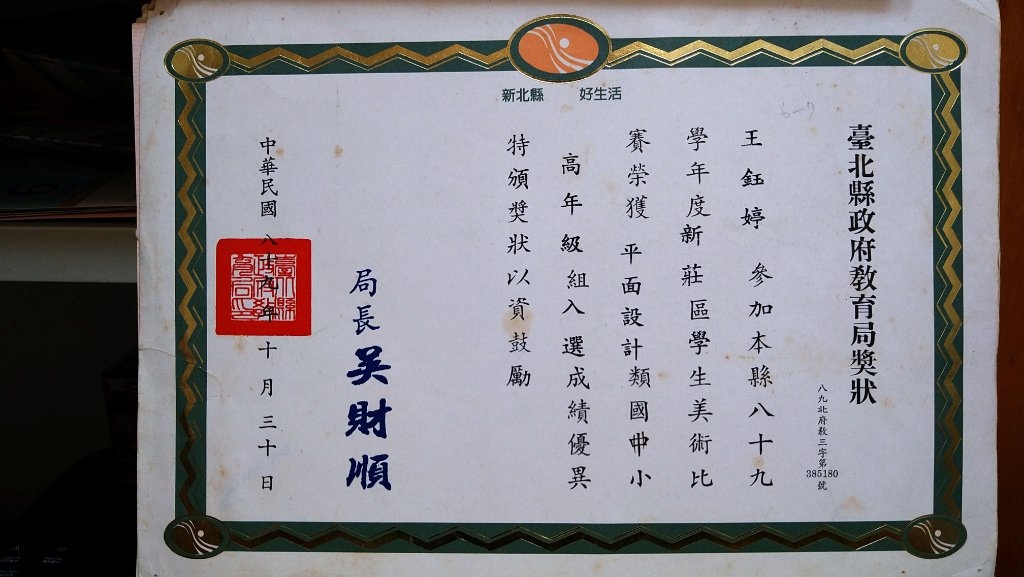 新北縣 好生活
臺北縣政府教育局獎狀
八九北府教三字第385180號
王鈺婷 參加本縣八十九
學年度新莊區學生美術比
賽榮獲 平面設計類國小
高年級組入選成績優異
特頒獎狀以資鼓勵
局長 吴財順
中華民國八十九年十月三十日